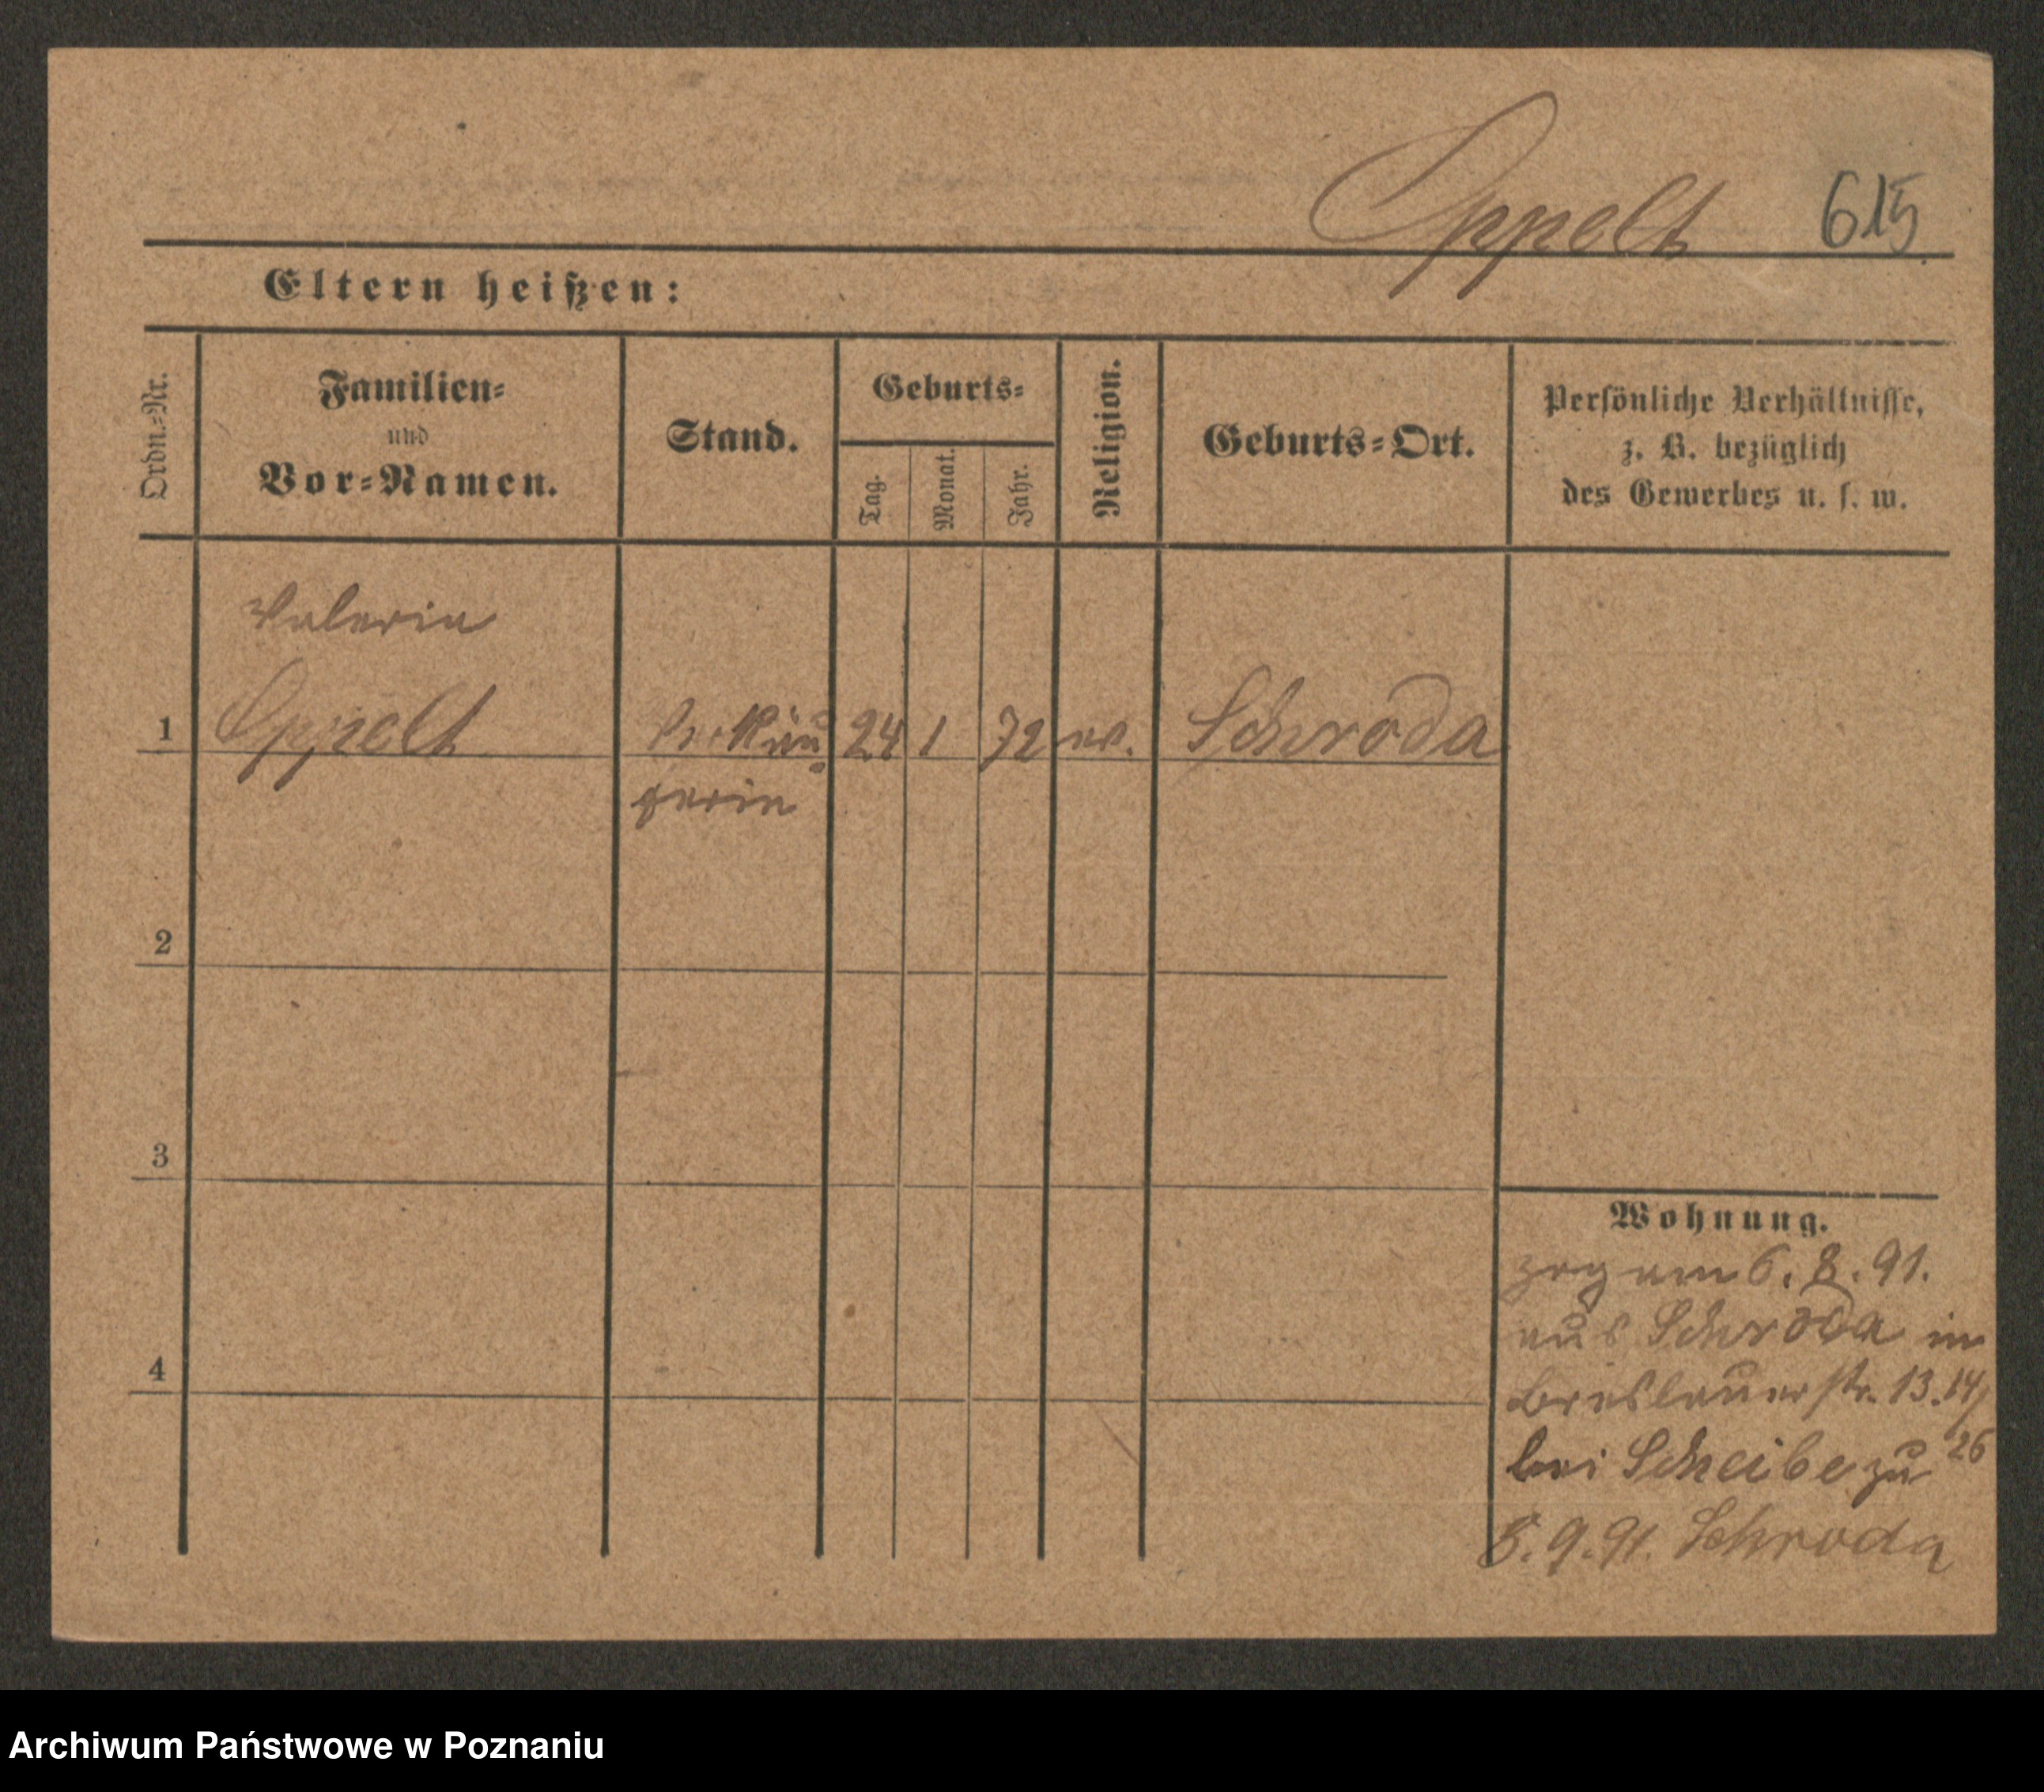 Oppelt 615
Eltern heißen:
Ordn.=Nr.
Familien=
und
Vor=Namen.
Stand.
Geburts=
Tag.
Monat.
Jahr.
Religion.
Geburts=Ort.
Persönliche Verhältnisse,
z. B. bezüglich
des Gewerbes u. s. w.
Valeria
1 Oppelt Verkäu 24 1 72 ev. Schroda
ferin
2
3
4
Wohnung.
zog am 6. 8. 91.
aus Schroda in
Breslauerstr. 13.14/
bei Scheibe zu 26
8. 9. 91. Schroda
Archiwum Państwowe w Poznaniu